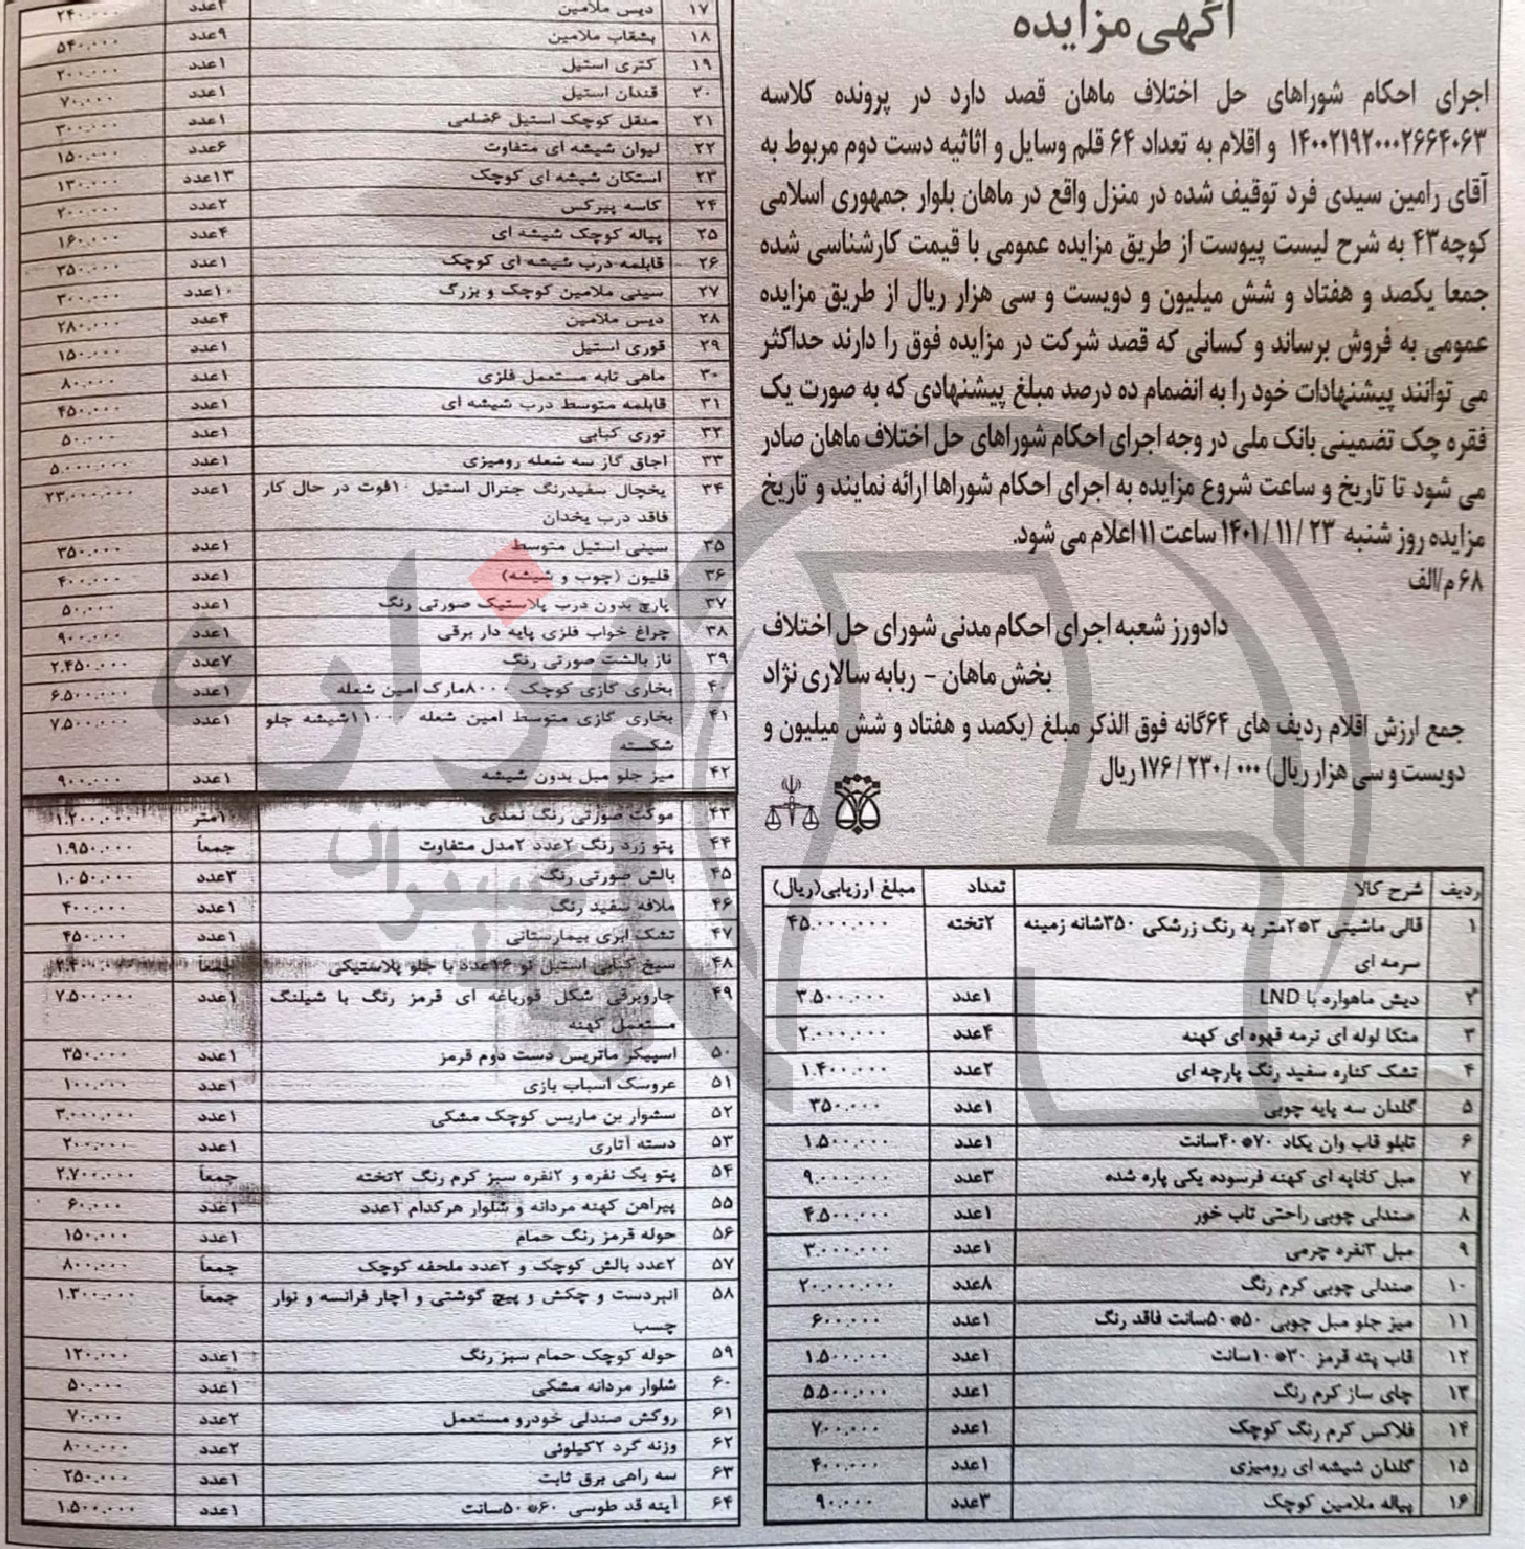 آگهی مزایده
اجرای احکام شوراهای حل اختلاف ماهان قصد دارد در پرونده کلاسه
۱۴۰۰۲۱۹۲۰۰۰۲۶۶۴۰۶۳ و اقلام به تعداد ۶۴ قلم وسایل و اثاثیه دست دوم مربوط به
آقای رامین سیدی فرد توقیف شده در منزل واقع در ماهان بلوار جمهوری اسلامی
کوچه۴۳ به شرح لیست پیوست از طریق مزایده عمومی با قیمت کارشناسی شده
جمعا یکصد و هفتاد و شش میلیون و دویست و سی هزار ریال از طریق مزایده
عمومی به فروش برساند و کسانی که قصد شرکت در مزایده فوق را دارند حداکثر
می توانند پیشنهادات خود را به انضمام ده درصد مبلغ پیشنهادی که به صورت یک
فقره چک تضمینی بانک ملی در وجه اجرای احکام شوراهای حل اختلاف ماهان صادر
می شود تا تاریخ و ساعت شروع مزایده به اجرای احکام شوراها ارائه نمایند و تاریخ
مزایده روز شنبه ۲۳ /۱۱ /۱۴۰۱ ساعت ۱۱ اعلام می شود.
۶۸ م/الف
دادورز شعبه اجرای احکام مدنی شورای حل اختلاف
بخش ماهان - ربابه سالاری نژاد
جمع ارزش اقلام ردیف های ۶۴گانه فوق الذکر مبلغ (یکصد و هفتاد و شش میلیون و
دویست و سی هزار ریال) ۱۷۶/۲۳۰/۰۰۰ ریال
ردیف شرح کالا تعداد مبلغ ارزیابی(ریال)
۱ قالی ماشینی ۳*۲متر به رنگ زرشکی ۳۵۰شانه زمینه ۲تخته ۴۵.۰۰۰.۰۰۰
سرمه ای
۲ دیش ماهواره با LND ۱عدد ۳.۵۰۰.۰۰۰
۳ متکا لوله ای ترمه قهوه ای کهنه ۴عدد ۲.۰۰۰.۰۰۰
۴ تشک کناره سفید رنگ پارچه ای ۲عدد ۱.۴۰۰.۰۰۰
۵ گلدان سه پایه چوبی ۱عدد ۳۵۰.۰۰۰
۶ تابلو قاب وان یکاد ۷۰*۴۰سانت ۱عدد ۱.۵۰۰.۰۰۰
۷ مبل کاناپه ای کهنه فرسوده یکی پاره شده ۳عدد ۹.۰۰۰.۰۰۰
۸ صندلی چوبی راحتی تاب خور ۱عدد ۴.۵۰۰.۰۰۰
۹ مبل ۳نفره چرمی ۱عدد ۳.۰۰۰.۰۰۰
۱۰ صندلی چوبی کرم رنگ ۸عدد ۲۰.۰۰۰.۰۰۰
۱۱ میز جلو مبل چوبی ۵۰*۵۰سانت فاقد رنگ ۱عدد ۶۰۰.۰۰۰
۱۲ قاب پته قرمز ۳۰*۱۰سانت ۱عدد ۱.۵۰۰.۰۰۰
۱۳ چای ساز کرم رنگ ۱عدد ۵.۵۰۰.۰۰۰
۱۴ فلاکس کرم رنگ کوچک ۱عدد ۷۰۰.۰۰۰
۱۵ گلدان شیشه ای رومیزی ۱عدد ۴۰۰.۰۰۰
۱۶ پیاله ملامین کوچک ۳عدد ۹۰.۰۰۰
۱۷ دیس ملامین ۲۴۰.۰۰۰
۱۸ بشقاب ملامین ۹عدد ۵۴۰.۰۰۰
۱۹ کتری استیل ۱عدد ۲۰۰.۰۰۰
۲۰ قندان استیل ۱عدد ۷۰.۰۰۰
۲۱ منقل کوچک استیل ۶ضلعی ۱عدد ۳۰۰.۰۰۰
۲۲ لیوان شیشه ای متفاوت ۶عدد ۱۵۰.۰۰۰
۲۳ استکان شیشه ای کوچک ۱۳عدد ۱۳۰.۰۰۰
۲۴ کاسه پیرکس ۲عدد ۲۰۰.۰۰۰
۲۵ پیاله کوچک شیشه ای ۴عدد ۱۶۰.۰۰۰
۲۶ قابلمه درب شیشه ای کوچک ۱عدد ۳۵۰.۰۰۰
۲۷ سینی ملامین کوچک و بزرگ ۱۰عدد ۳۰۰.۰۰۰
۲۸ دیس ملامین ۴عدد ۲۸۰.۰۰۰
۲۹ قوری استیل ۱عدد ۱۵۰.۰۰۰
۳۰ ماهی تابه مستعمل فلزی ۱عدد ۸۰.۰۰۰
۳۱ قابلمه متوسط درب شیشه ای ۱عدد ۴۵۰.۰۰۰
۳۲ توری کبابی ۱عدد ۵۰.۰۰۰
۳۳ اجاق گاز سه شعله رومیزی ۱عدد ۵.۰۰۰.۰۰۰
۳۴ یخچال سفیدرنگ جنرال استیل ۱۰فوت در حال کار ۱عدد ۲۳.۰۰۰.۰۰۰
فاقد درب یخدان
۳۵ سینی استیل متوسط ۱عدد ۳۵۰.۰۰۰
۳۶ قلیون (چوب و شیشه) ۱عدد ۴۰۰.۰۰۰
۳۷ پارچ بدون درب پلاستیک صورتی رنگ ۱عدد ۵۰.۰۰۰
۳۸ چراغ خواب فلزی پایه دار برقی ۱عدد ۹۰۰.۰۰۰
۳۹ ناز بالشت صورتی رنگ ۷عدد ۲.۴۵۰.۰۰۰
۴۰ بخاری گازی کوچک ۸۰۰۰مارک امین شعله ۱عدد ۶.۵۰۰.۰۰۰
۴۱ بخاری گازی متوسط امین شعله ۱۱۰۰۰شیشه جلو ۱عدد ۷.۵۰۰.۰۰۰
شکسته
۴۲ میز جلو مبل بدون شیشه ۱عدد ۹۰۰.۰۰۰
۴۳ موکت صورتی رنگ نمدی ۱۰متر ۱.۲۰۰.۰۰۰
۴۴ پتو زرد رنگ ۲عدد ۲مدل متفاوت جمعاً ۱.۹۵۰.۰۰۰
۴۵ بالش صورتی رنگ ۳عدد ۱.۰۵۰.۰۰۰
۴۶ ملافه سفید رنگ ۱عدد ۴۰۰.۰۰۰
۴۷ تشک ابری بیمارستانی ۱عدد ۴۵۰.۰۰۰
۴۸ سیخ کبابی استیل نو ۱۶عدد با جلو پلاستیکی جمعاً ۲.۴۰۰.۰۰۰
۴۹ جاروبرقی شکل قورباغه ای قرمز رنگ با شیلنگ ۱عدد ۷.۵۰۰.۰۰۰
مستعمل کهنه
۵۰ اسپیکر ماتریس دست دوم قرمز ۱عدد ۳۵۰.۰۰۰
۵۱ عروسک اسباب بازی ۱عدد ۱۰۰.۰۰۰
۵۲ سشوار بن ماریس کوچک مشکی ۱عدد ۳.۰۰۰.۰۰۰
۵۳ دسته آتاری ۱عدد ۲۰۰.۰۰۰
۵۴ پتو یک نفره و ۲نفره سبز کرم رنگ ۲تخته جمعاً ۲.۷۰۰.۰۰۰
۵۵ پیراهن کهنه مردانه و شلوار هرکدام ۱عدد ۱عدد ۶۰.۰۰۰
۵۶ حوله قرمز رنگ حمام ۱عدد ۱۵۰.۰۰۰
۵۷ ۲عدد بالش کوچک و ۲عدد ملحفه کوچک جمعاً ۸۰۰.۰۰۰
۵۸ انبردست و چکش و پیچ گوشتی و آچار فرانسه و نوار جمعاً ۱.۳۰۰.۰۰۰
چسب
۵۹ حوله کوچک حمام سبز رنگ ۱عدد ۱۲۰.۰۰۰
۶۰ شلوار مردانه مشکی ۱عدد ۵۰.۰۰۰
۶۱ روکش صندلی خودرو مستعمل ۲عدد ۷۰.۰۰۰
۶۲ وزنه گرد ۲کیلوئی ۲عدد ۸۰۰.۰۰۰
۶۳ سه راهی برق ثابت ۱عدد ۲۵۰.۰۰۰
۶۴ آینه قد طوسی ۶۰*۵۰سانت ۱عدد ۱.۵۰۰.۰۰۰
هزاره
گستران